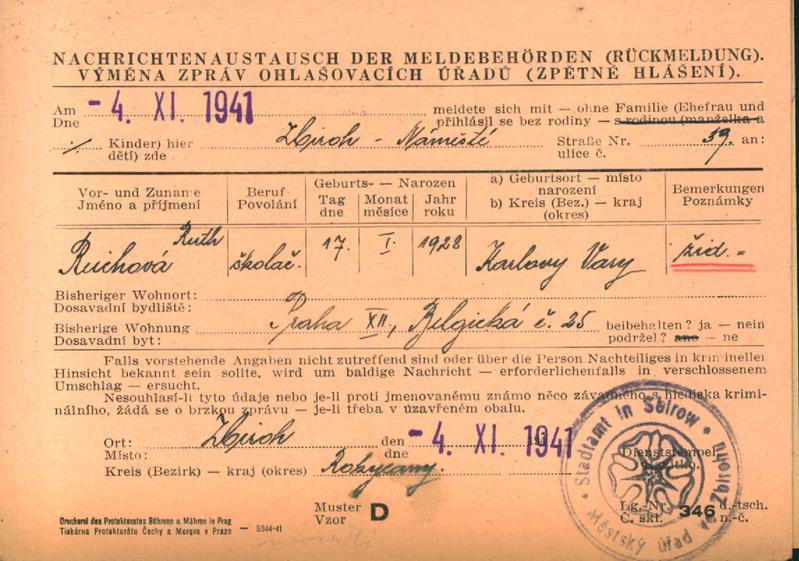 NACHRICHTENAUSTAUSCH DER MELDEBEHÖRDEN (RÜCKMELDUNG).
VÝMĚNA ZPRÁV OHLAŠOVACÍCH ÚŘADŮ (ZPĚTNÉ HLÁŠENÍ).
Am - 4. XI. 1941 meldete sich mit — ohne Familie (Ehefrau und
Dne přihlásil se bez rodiny — s rodinou (manželka a
·/. Kinder) hier Zbiroh - Náměstí Straße Nr. 39. an:
děti) zde ulice č.
Vor- und Zuname Beruf Geburts- — Narozen a) Geburtsort — místo Bemerkungen
Jméno a příjmení Povolání Tag Monat Jahr narození Poznámky
dne měsíce roku b) Kreis (Bez.) — kraj
(okres)
Reichová Ruth školač. 17. I. 1928 Karlovy Vary žid. -
Bisheriger Wohnort:
Dosavadní bydliště:
Bisherige Wohnung Praha XII, Belgická č. 25 beibehalten? ja — nein
Dosavadní byt: podržel? ano — ne
Falls vorstehende Angaben nicht zutreffend sind oder über die Person Nachteiliges in krimineller
Hinsicht bekannt sein sollte, wird um baldige Nachricht — erforderlichenfalls in verschlossenem
Umschlag — ersucht.
Nesouhlasí-li tyto údaje nebo je-li proti jmenovanému známo něco závadného s hlediska krimi-
nálního, žádá se o brzkou zprávu — je-li třeba v uzavřeném obalu.
Ort: Zbiroh den - 4. XI. 1941
Místo: dne
Kreis (Bezirk) — kraj (okres) Rokycany.
Dienststempel
Razítko.
Stadtamt in Sbirow
Městský úřad ve Zbirohu
Muster D
Vzor
Lg.-Nr. 346 d.-tsch.
Č. skl. n.-č.
Druckerei des Protektorates Böhmen u. Mähren in Prag
Tiskárna Protektorátu Čechy a Morava v Praze — 5344-41